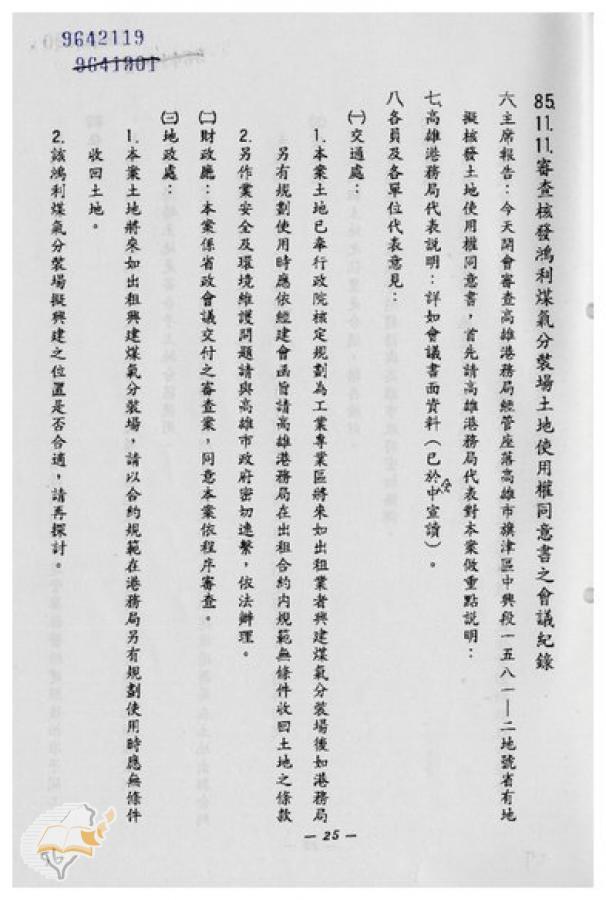 9642119
9641901
85.11.11.審查核發鴻利煤氣分裝場土地使用權同意書之會議紀錄
六、主席報告：今天開會審查高雄港務局經管座落高雄市旗津區中興段一五八一—二地號省有地
擬核發土地使用權同意書，首先請高雄港務局代表對本案做重點說明：
七、高雄港務局代表說明：詳如會議書面資料（已於會中宣讀）。
八、各員及各單位代表意見：
㈠交通處：
1.本案土地已奉行政院核定規劃為工業專業區將來如出租業者興建煤氣分裝場後如港務局
另有規劃使用時應依經建會函旨請高雄港務局在出租合約內規範無條件收回土地之條款
2.另作業安全及環境維護問題請與高雄市政府密切連繫，依法辦理。
㈡財政廳：本案係省政會議交付之審查案，同意本案依程序審查。
㈢地政處：
1.本案土地將來如出租興建煤氣分裝場，請以合約規範在港務局另有規劃使用時應無條件
收回土地。
2.該鴻利煤氣分裝場擬興建之位置是否合適，請再探討。
— 25 —